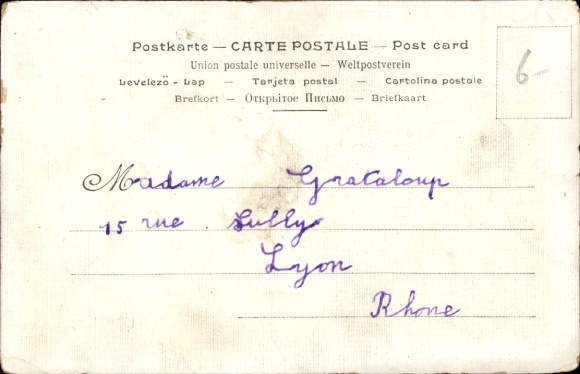 Postkarte — CARTE POSTALE — Post card
Union postale universelle — Weltpostverein
Levelező - Lap — Tarjeta postal — Cartolina postale
Brefkort — Открытое Письмо — Briefkaart
6-
Madame Grataloup
15 rue . Sully
Lyon
Rhone